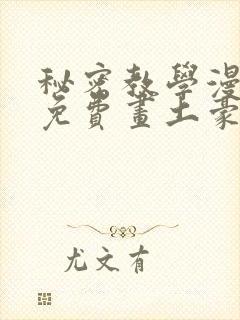 秘密教學漫
免費畫土豪
尤文有